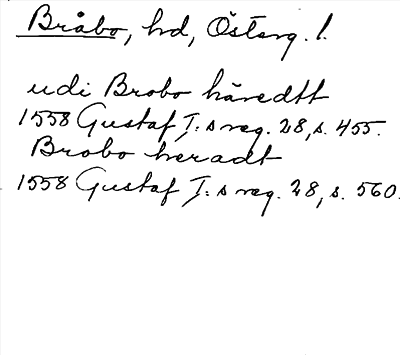 Bråbo, hd, Österg. l.
udi Brobo häredtt
1558 Gustaf I:s reg. 28, s. 455.
Brobo heradt
1558 Gustaf I:s reg. 28, s. 560.